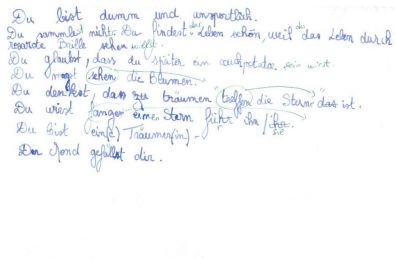 Du bist dumm und unsportlich.
Du sammelst nichts. Du findest das Leben schön, weil du das Leben durch
rosarote Brille sehen willst.
Du glaubst, dass du später ein couchpotato sein wirst.
Du magst sehen die Blumen.
Du denkst, dass zu träumen "treffen die Sterne" das ist.
Du wirst fangen einen Stern für ihn / sie
Du bist ein(e) Träumer(in).
Der Mond gefällt dir.